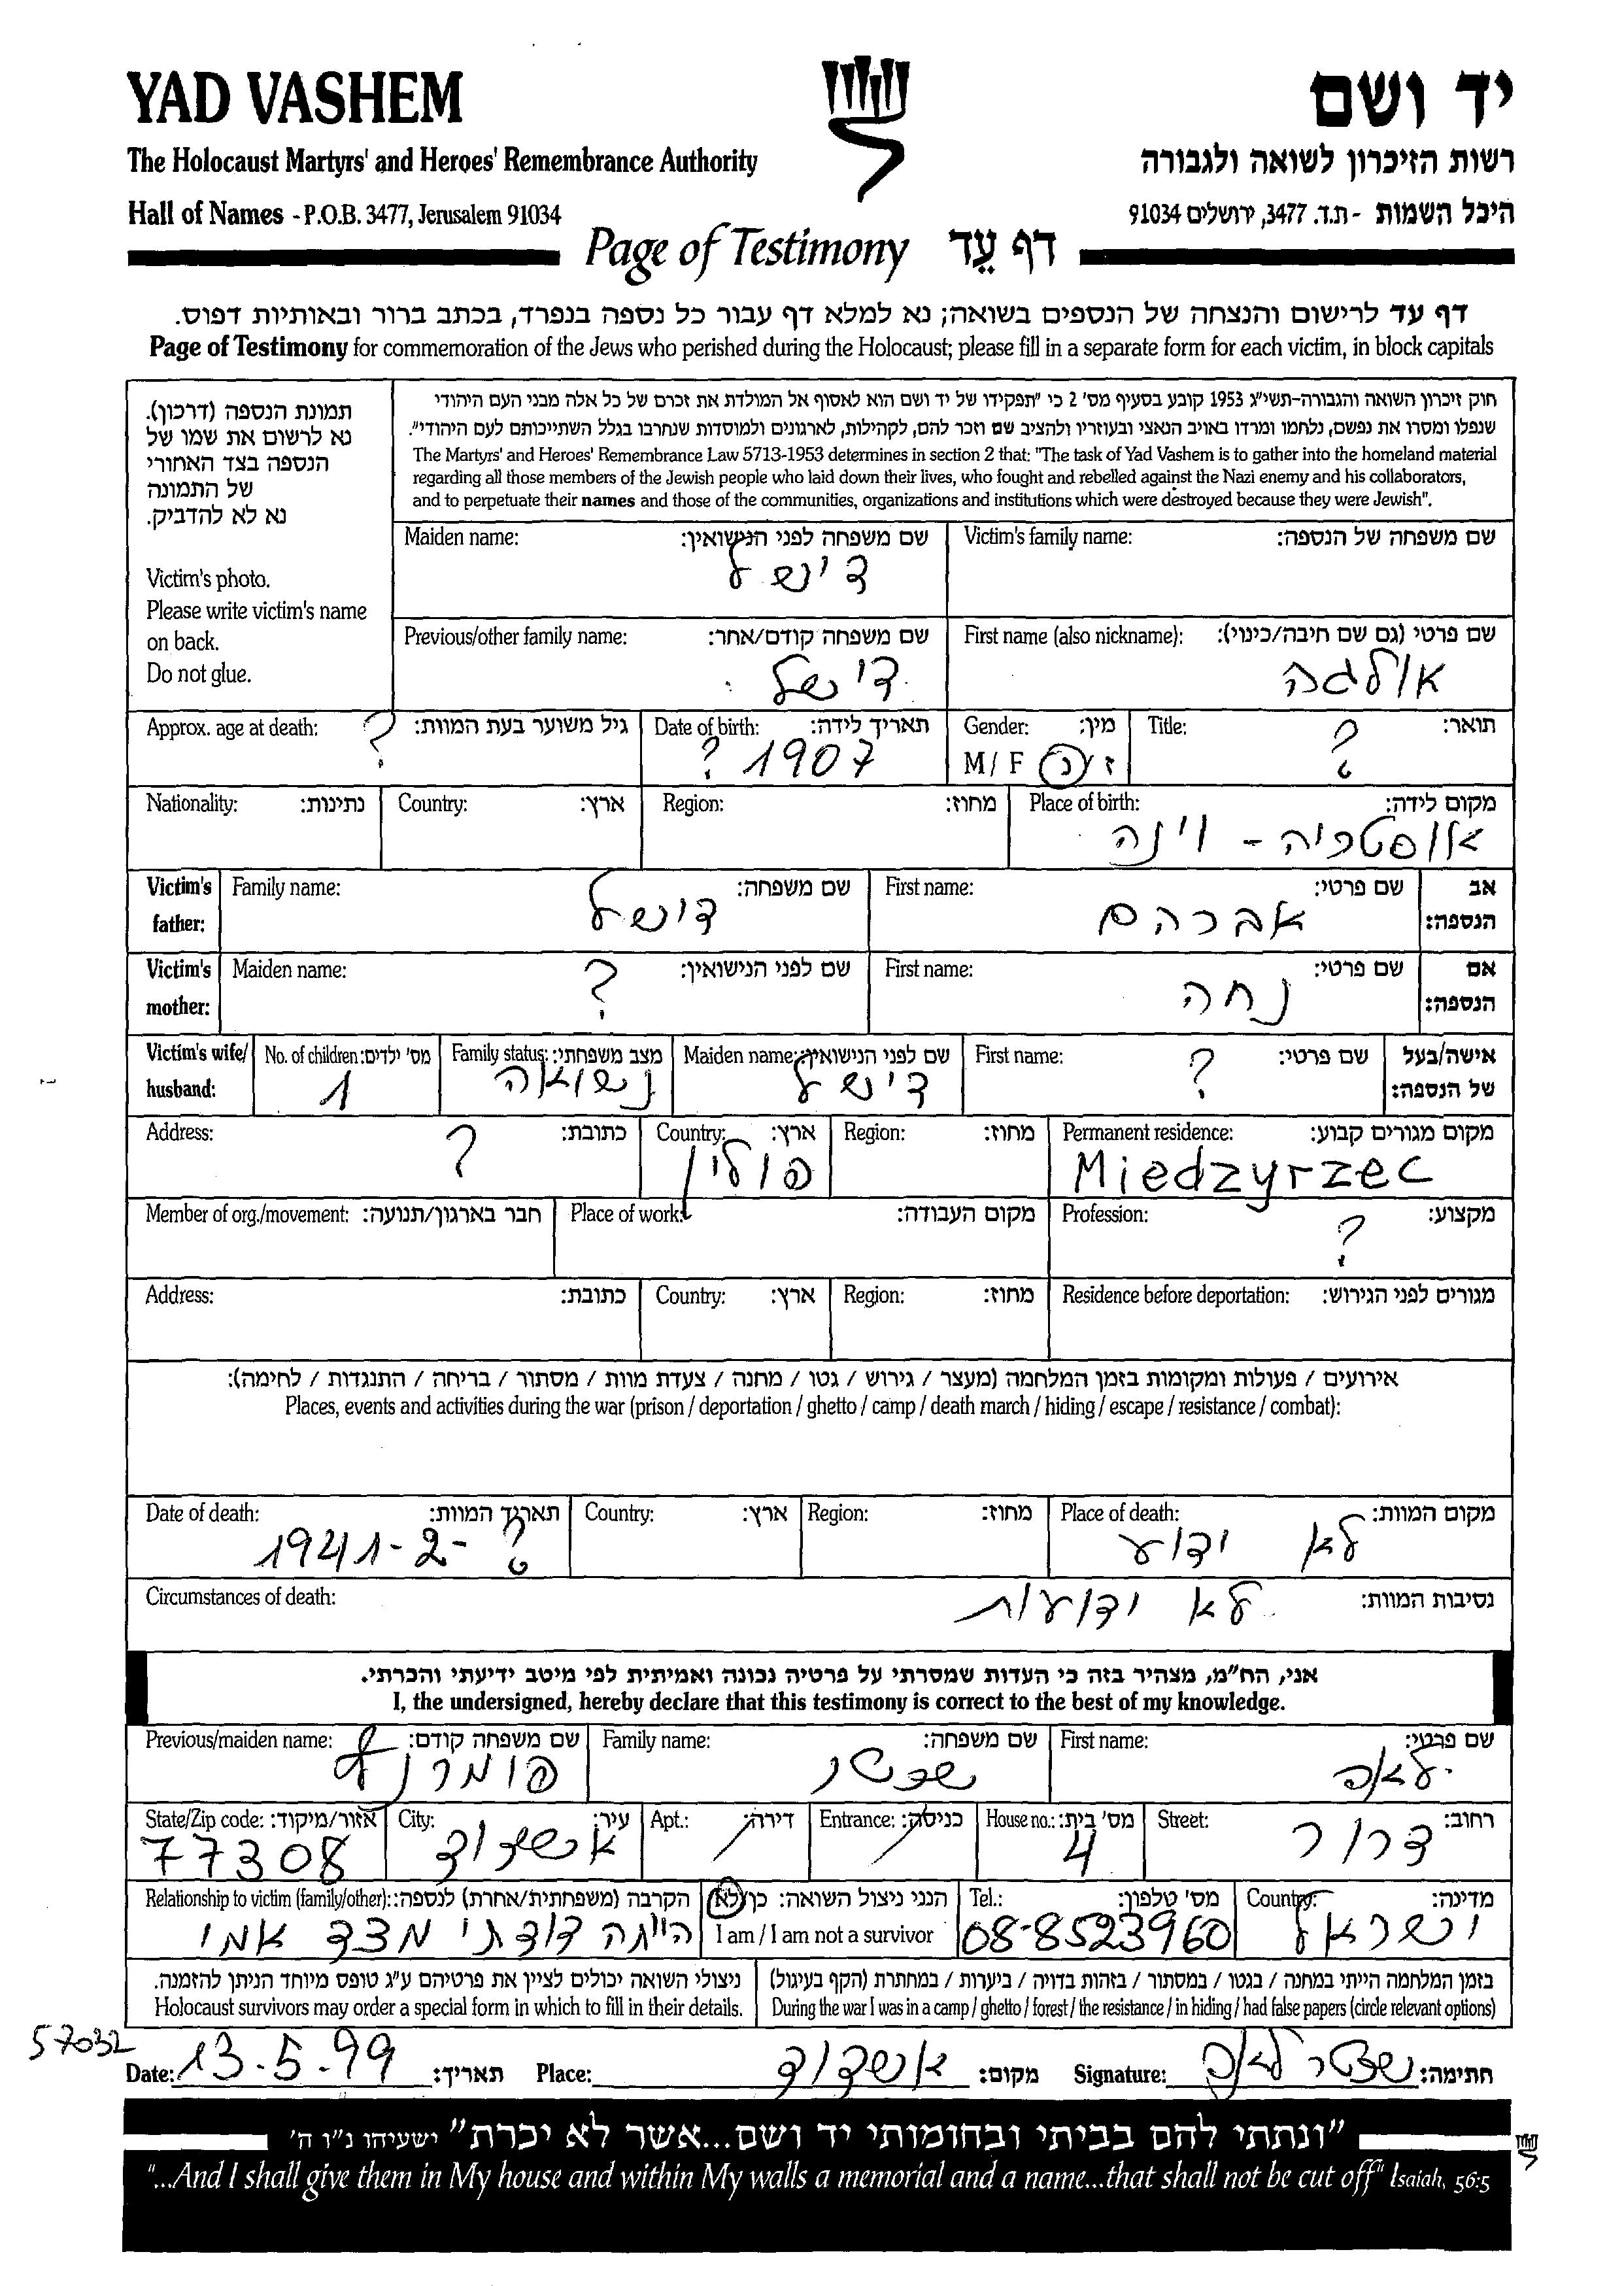 YAD VASHEM
יד ושם
The Holocaust Martyrs' and Heroes' Remembrance Authority
רשות הזיכרון לשואה ולגבורה
Hall of Names - P.O.B. 3477, Jerusalem 91034
היכל השמות - ת.ד. 3477, ירושלים 91034
Page of Testimony דף עֵד
דף עד לרישום והנצחה של הנספים בשואה; נא למלא דף עבור כל נספה בנפרד, בכתב ברור ובאותיות דפוס.
Page of Testimony for commemoration of the Jews who perished during the Holocaust; please fill in a separate form for each victim, in block capitals
תמונת הנספה (דרכון).
נא לרשום את שמו של
הנספה בצד האחורי
של התמונה
נא לא להדביק.
Victim's photo.
Please write victim's name
on back.
Do not glue.
חוק זיכרון השואה והגבורה-תשי"ג 1953 קובע בסעיף מס' 2 כי "תפקידו של יד ושם הוא לאסוף אל המולדת את זכרם של כל אלה מבני העם היהודי
שנפלו ומסרו את נפשם, נלחמו ומרדו באויב הנאצי ובעוזריו ולהציב שם וזכר להם, לקהילות, לארגונים ולמוסדות שנחרבו בגלל השתייכותם לעם היהודי".
The Martyrs' and Heroes' Remembrance Law 5713-1953 determines in section 2 that: "The task of Yad Vashem is to gather into the homeland material
regarding all those members of the Jewish people who laid down their lives, who fought and rebelled against the Nazi enemy and his collaborators,
and to perpetuate their names and those of the communities, organizations and institutions which were destroyed because they were Jewish".
Victim's family name: שם משפחה של הנספה:
Maiden name: שם משפחה לפני הנישואין:
דישל
First name (also nickname): שם פרטי (גם שם חיבה/כינוי):
אולגה
Previous/other family name: שם משפחה קודם/אחר:
דישל
Title: תואר:
?
Gender: מין:
M / F ז / נ
Date of birth: תאריך לידה:
? 1907
Approx. age at death: גיל משוער בעת המוות:
?
Place of birth: מקום לידה:
אוסטריה - וינה
Region: מחוז:
Country: ארץ:
Nationality: נתינות:
Victim's father: אב הנספה:
First name: שם פרטי:
אברהם
Family name: שם משפחה:
דישל
Victim's mother: אם הנספה:
First name: שם פרטי:
נחה
Maiden name: שם לפני הנישואין:
?
Victim's wife/husband: אישה/בעל של הנספה:
First name: שם פרטי:
?
Maiden name: שם לפני הנישואין:
דישל
Family status: מצב משפחתי:
נשואה
No. of children: מס' ילדים:
1
Permanent residence: מקום מגורים קבוע:
Miedzyrzec
Region: מחוז:
Country: ארץ:
פולין
Address: כתובת:
?
Profession: מקצוע:
?
Place of work: מקום העבודה:
Member of org./movement: חבר בארגון/תנועה:
Residence before deportation: מגורים לפני הגירוש:
Region: מחוז:
Country: ארץ:
Address: כתובת:
אירועים / פעולות ומקומות בזמן המלחמה (מעצר / גירוש / גטו / מחנה / צעדת מוות / מסתור / בריחה / התנגדות / לחימה):
Places, events and activities during the war (prison / deportation / ghetto / camp / death march / hiding / escape / resistance / combat):
Place of death: מקום המוות:
לא ידוע
Region: מחוז:
Country: ארץ:
Date of death: תאריך המוות:
1941-2- ?
Circumstances of death: נסיבות המוות:
לא ידועות
אני, הח"מ, מצהיר בזה כי העדות שמסרתי על פרטיה נכונה ואמיתית לפי מיטב ידיעתי והכרתי.
I, the undersigned, hereby declare that this testimony is correct to the best of my knowledge.
First name: שם פרטי:
Family name: שם משפחה:
Previous/maiden name: שם משפחה קודם:
Street: רחוב:
דרור
House no.: מס' בית:
4
Entrance: כניסה:
/
Apt.: דירה:
/
City: עיר:
אשדוד
State/Zip code: אזור/מיקוד:
77308
Country: מדינה:
ישראל
Tel.: מס' טלפון:
08-8523960
הנני ניצול השואה: כן/לא
I am / I am not a survivor
Relationship to victim (family/other): הקרבה (משפחתית/אחרת) לנספה:
הייתה דודתי מצד אמי
בזמן המלחמה הייתי במחנה / בגטו / במסתור / בזהות בדויה / ביערות / במחתרת (הקף בעיגול)
During the war I was in a camp / ghetto / forest / the resistance / in hiding / had false papers (circle relevant options)
ניצולי השואה יכולים לציין את פרטיהם ע"ג טופס מיוחד הניתן להזמנה.
Holocaust survivors may order a special form in which to fill in their details.
57032
Date: 13.5.99 תאריך:
Place: אשדוד מקום:
Signature: חתימה:
"ונתתי להם בביתי ובחומותי יד ושם...אשר לא יכרת" ישעיהו נ"ו ה'
"...And I shall give them in My house and within My walls a memorial and a name...that shall not be cut off" Isaiah, 56:5